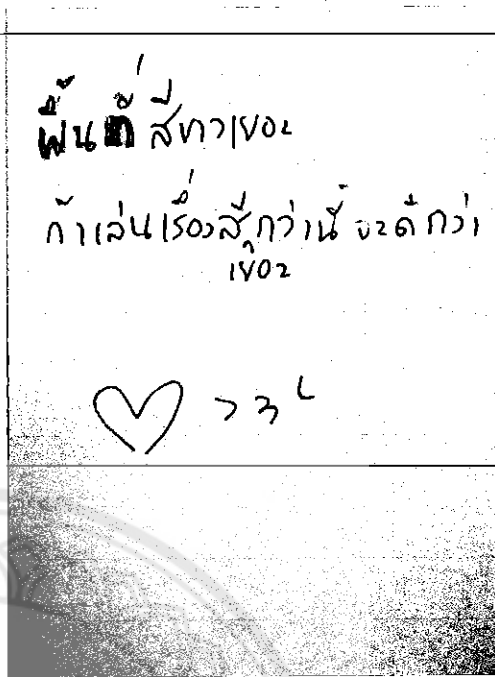 พื้นที่สีขาวเยอะ
ถ้าเล่นเรื่องสีกว่านี้ จะดีกว่า
เยอะ